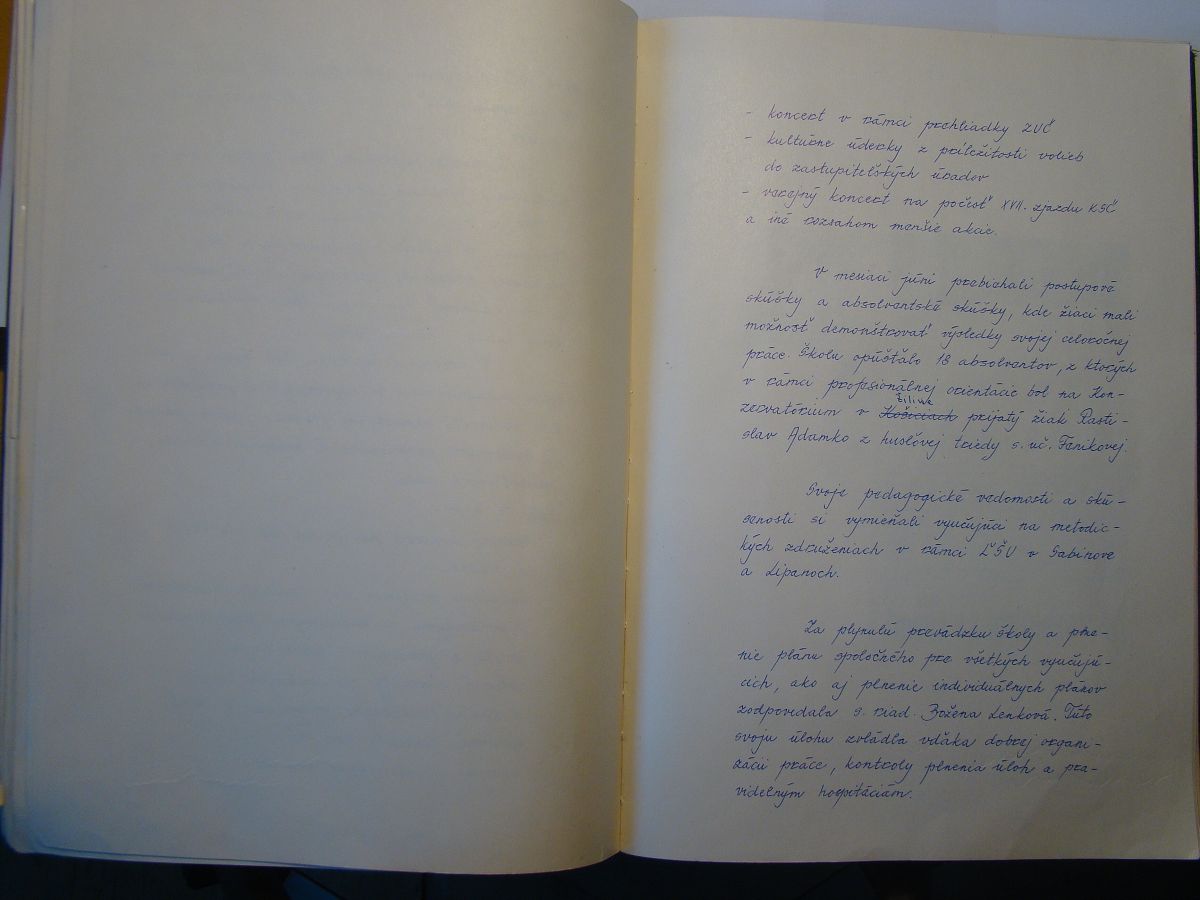 - koncert v rámci prehliadky ZUČ
- kultúrne úderky z príležitosti volieb
do zastupiteľských úradov
- verejný koncert na počesť XVII. zjazdu KSČ
a iné rozsahom menšie akcie.
V mesiaci júni prebiehali postupové
skúšky a absolventské skúšky, kde žiaci mali
možnosť demonštrovať výsledky svojej celoročnej
práce. Školu opúšťalo 18 absolventov, z ktorých
v rámci profesionálnej orientácie bol na Kon-
Žiline
zervatórium v Košiciach prijatý žiak Rasti-
slav Adamko z husľovej triedy s. uč. Fenikovej.
Svoje pedagogické vedomosti a skú-
senosti si vymieňali vyučujúci na metodic-
kých združeniach v rámci ĽŠU v Sabinove
a Lipanoch.
Za plynulú prevádzku školy a plne-
nie plánu spoločného pre všetkých vyučujú-
cich, ako aj plnenie individuálnych plánov
zodpovedala s. riad. Božena Lenková. Túto
svoju úlohu zvládla vďaka dobrej organi-
zácii práce, kontroly plnenia úloh a pra-
videlným hospitáciám.